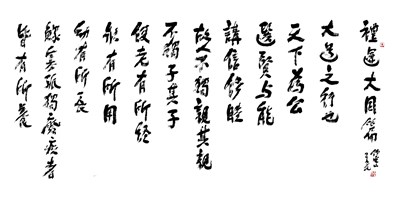 禮運大同篇
大道之行也
天下為公
選賢与能
講信修睦
故人不獨親其親
不獨子其子
使老有所終
壯有所用
幼有所長
鰥寡孤獨廢疾者
皆有所養